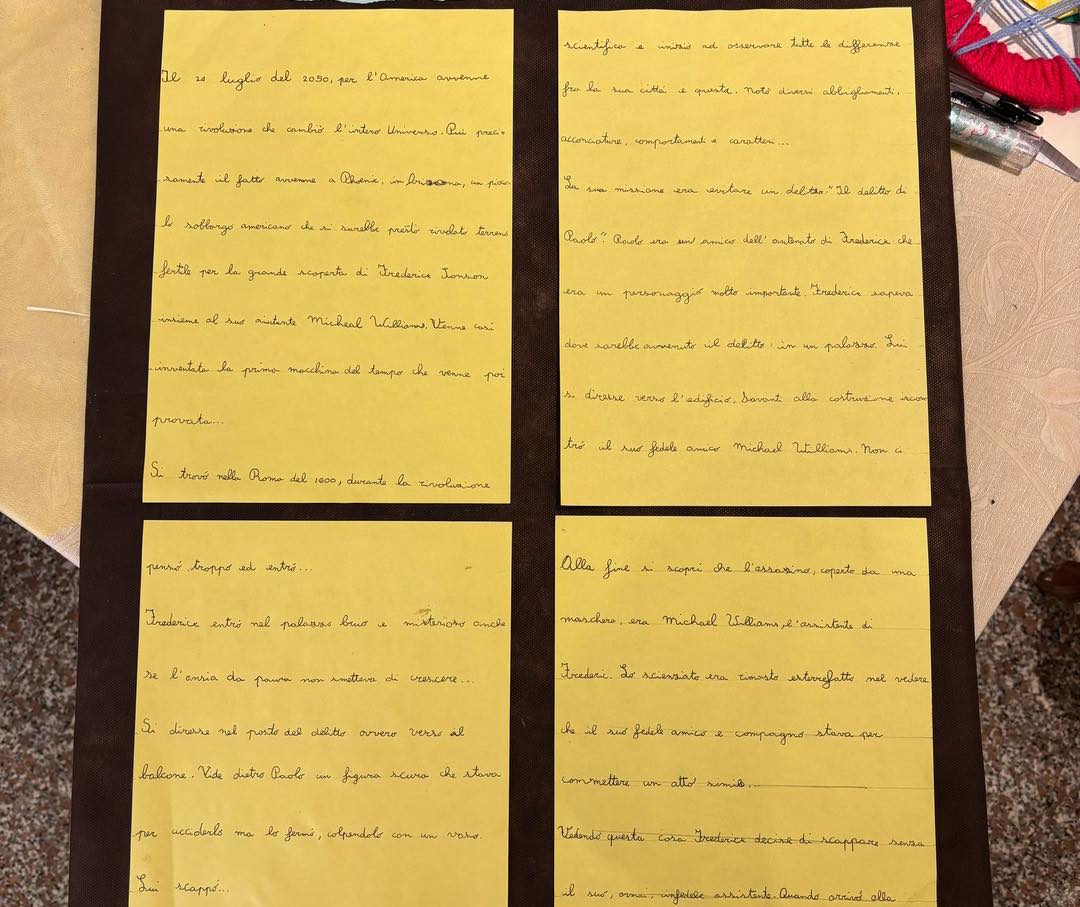 Il 20 luglio del 2050, per l'America avvenne
una rivoluzione che cambiò l'intero Universo. Più preci-
samente il fatto avvenne a Phoenix, in Arizona, un picco-
lo sobborgo americano che si sarebbe presto rivelato terreno
fertile per la grande scoperta di Frederick Jonson
insieme al suo aiutante Micheal Williams. Venne così
inventata la prima macchina del tempo che venne poi
provata...
Si trovò nella Roma del 1600, durante la rivoluzione
scientifica e iniziò ad osservare tutte le differenze
fra la sua città e questa. Notò diversi abbigliamenti,
acconciature, comportamenti e caratteri...
La sua missione era evitare un delitto: "Il delitto di
Paolo". Paolo era un amico dell'antenato di Frederick che
era un personaggio molto importante. Frederick sapeva
dove sarebbe avvenuto il delitto: in un palazzo. Lui
si diresse verso l'edificio. Davanti alla costruzione incon
trò il suo fedele amico Michael Williams. Non ci
pensò troppo ed entrò...
Frederick entrò nel palazzo buio e misterioso anche
se l'ansia da paura non smetteva di crescere...
Si diresse nel posto del delitto ovvero verso al
balcone. Vide dietro Paolo un figura scura che stava
per ucciderlo ma lo fermò, colpendolo con un vaso.
Lui scappò...
Alla fine si scoprì che l'assassino, coperto da una
maschera, era Michael Williams, l'assistente di
Frederic. Lo scienziato era rimasto esterrefatto nel vedere
che il suo fedele amico e compagno stava per
commettere un atto simile...
Vedendo questa cosa Frederick decise di scappare senza
il suo, ormai, infedele assistente. Quando arrivò alla